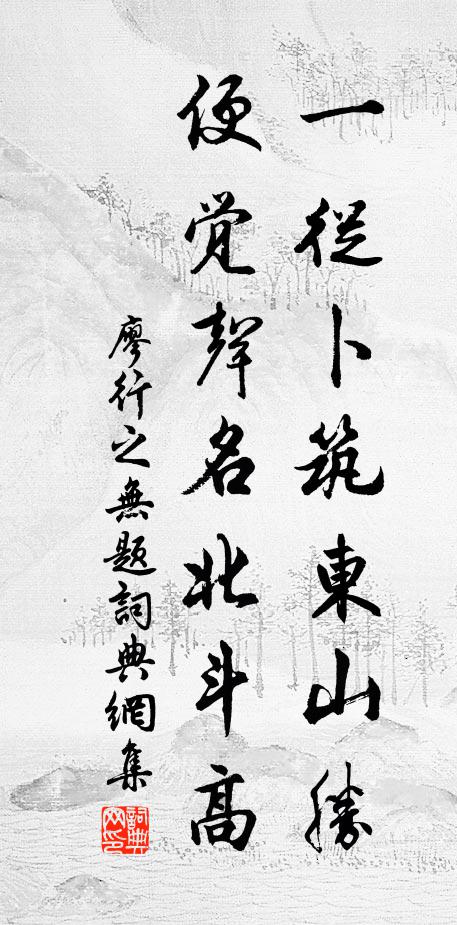 一從卜筑東山勝
便覺聲名北斗高
廖行之無題詞典網集
詞典網印